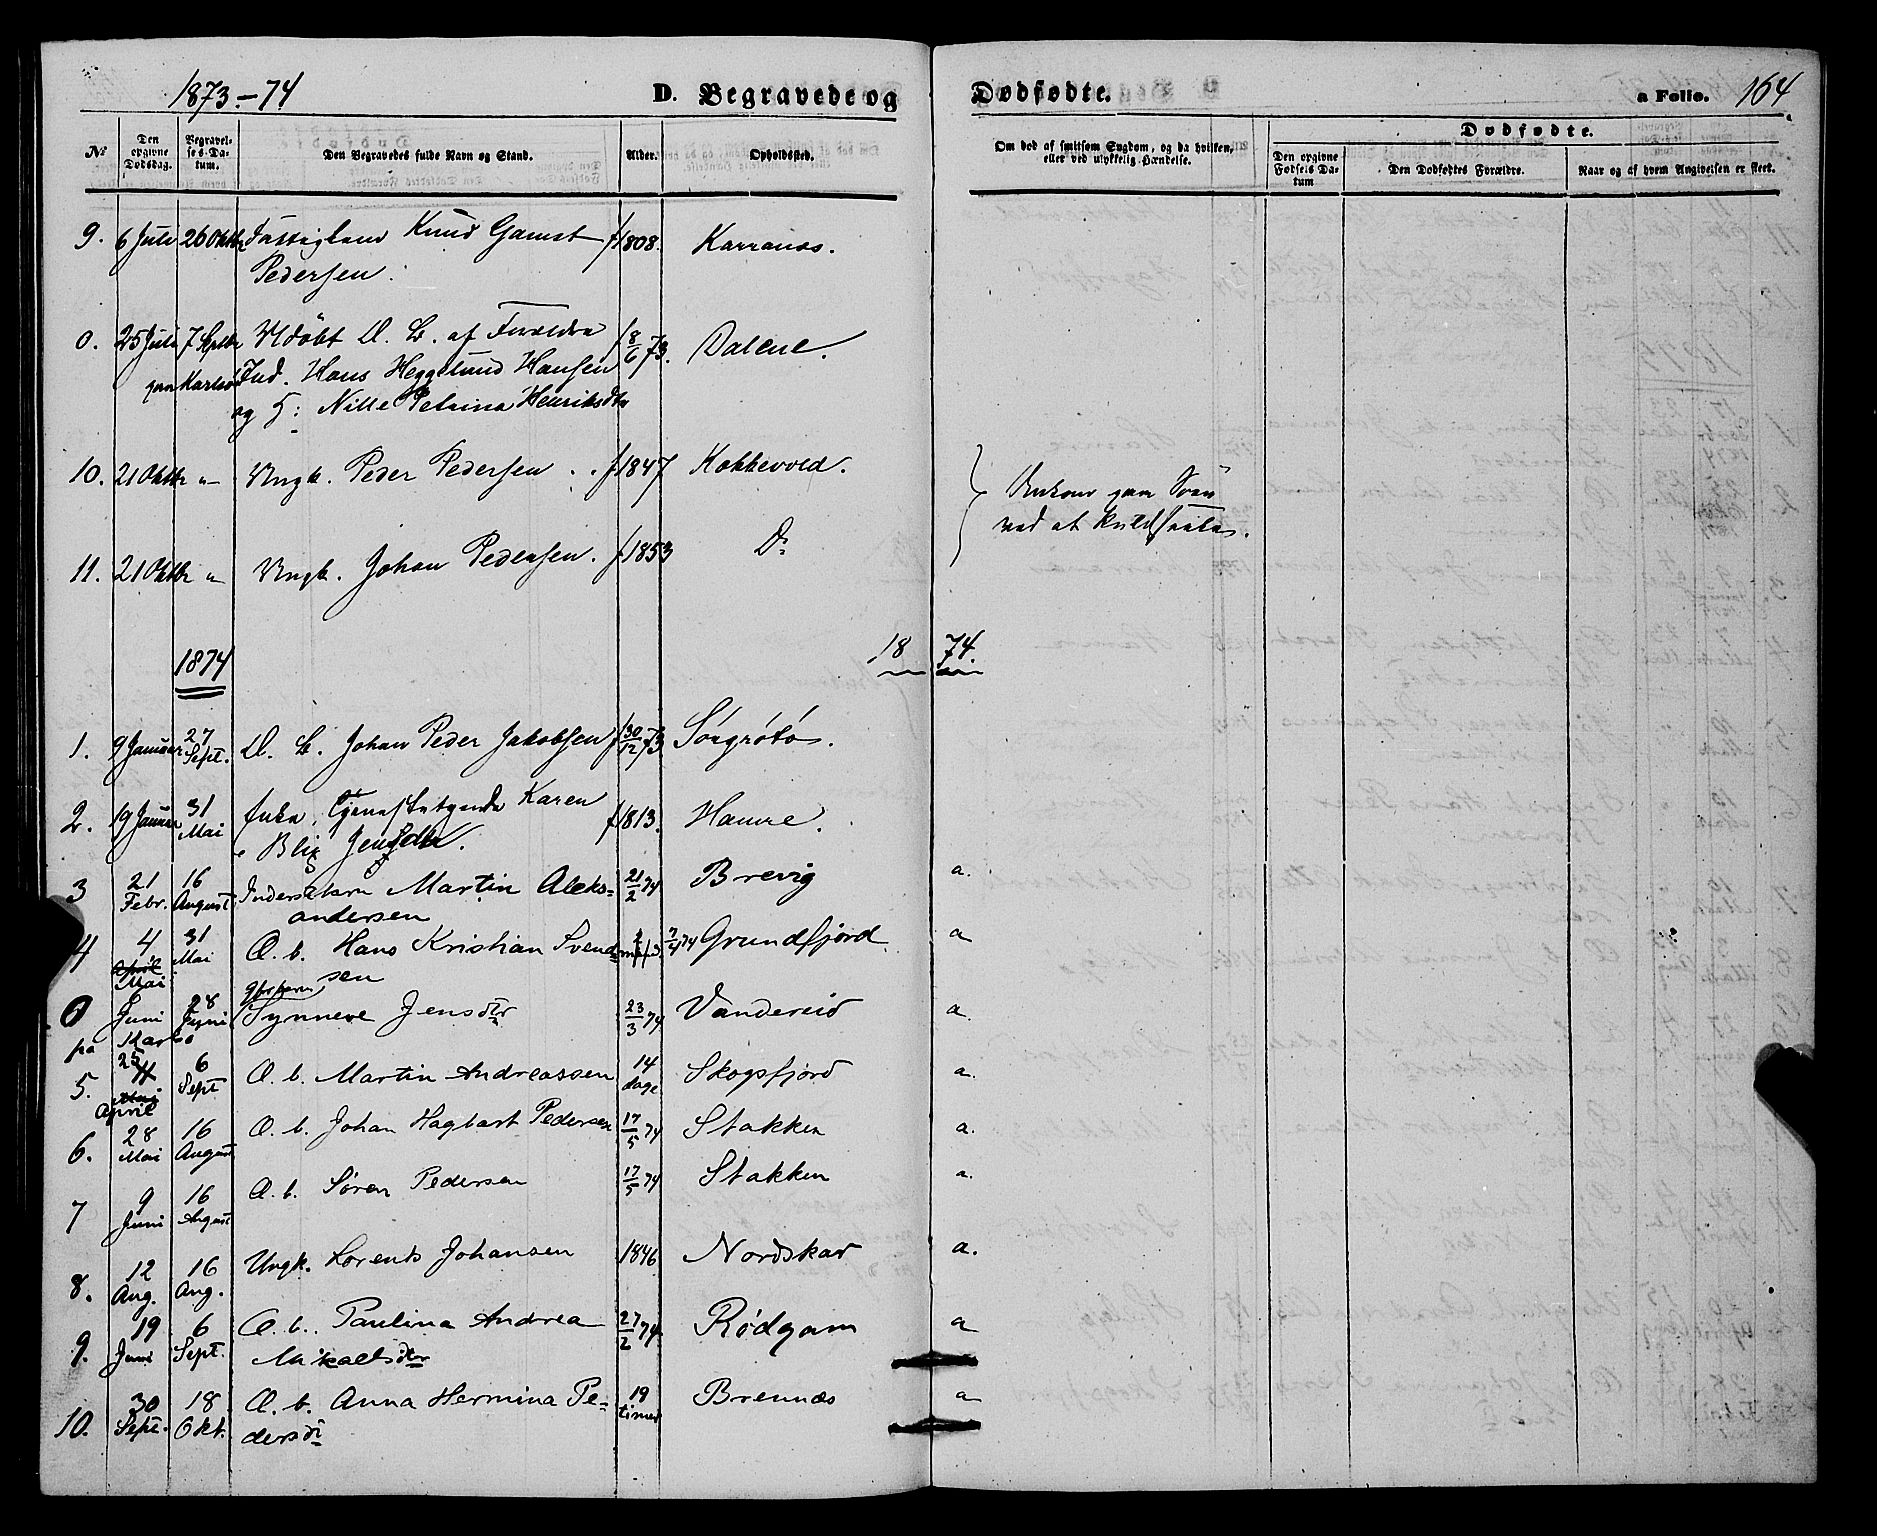 1873-74
D. Begravede og Dødfødte.
a Folio. 164
No
Den opgivne Dødsdag.
Begravelses-Datum.
Den Begravedes fulde Navn og Stand.
Alder.
Opholdssted.
Om død af smitsom Sygdom, og da hvilken, eller ved ulykkelig Hændelse.
Dødfødte.
Den opgivne Fødsels Datum
Den Dødfødtes Forældre.
Naar og af hvem Angivelsen er skeet.
9. 6 Juli 26 Oktbr Knud Gamst f 1808. Karranes.
Pedersen.
0. 25 Juli 7 Septbr Udöbt U. B. af Foraldre f 8/6 73. Dalene.
paa Karlsö Ind. Hans Heggelund Hansen
og H: Nille Petrina Henriksdtr
10. 21 Oktbr " Ungk. Peder Pedersen . f 1847 Kokkevold.
Omkom paa Söen
ved at kuldseile.
11. 21 Oktbr " Ungk. Johan Pedersen. f 1853 Do
1874
1874.
1. 9 Januar 27 Sept. U. B. Johan Peder Jakobsen f 30/12 73 Sörgrötö.
2. 19 Januar 31 Mai Enke, Karen f 1813. Hamre.
Blix Jensdtr.
3 21 Febr. 16 August Inderstbarn Martin Aleks- 21/2 74 Brevig a.
andersen
4 4 April Mai 31 Mai O. b. Hans Kristian Svend- 7/4 74 Grundfjord a
sen
0 Juni 28 Juni Gbrbarn Synneve Jensdtr 23/3 74 Vandereid a.
på Karlsö
5. 25 April 6 Sept O. b. Martin Andreassen 14 dage Skogsfjord a.
6. 28 Mai 16 August O. b. Johan Hagbart Pedersen 17/5 74 Stakken a.
7 9 Juni 16 August O. b. Søren Pedersen 17/5 74 Stakken a.
8. 12 Aug. 16 Aug. Ungk. Lorents Johansen 1846 Nordskar a.
9. 19 Juni 6 Sept. O. b. Paulina Andrea 27/2 74. Rødgam a
Mikaelsdtr
10. 30 Sept. 18 Okt. O. b. Anna Hermina Pe- 19 timer Brennæs a
dersdtr